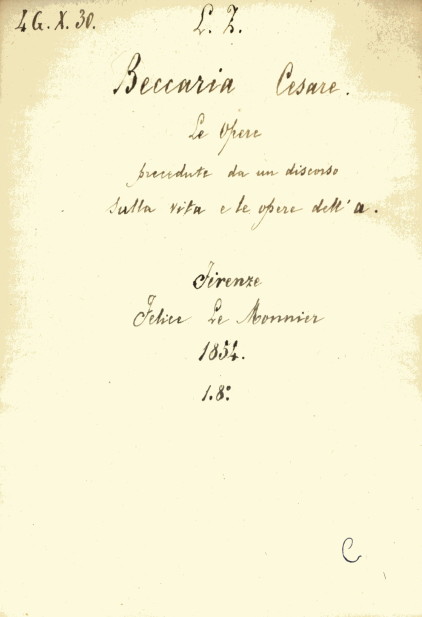 4 G. X. 30.
L. Z.
Beccaria Cesare.
Le Opere
precedute da un discorso
sulla vita e le opere dell' a.
Firenze
Felice Le Monnier
1854.
1.8º
C